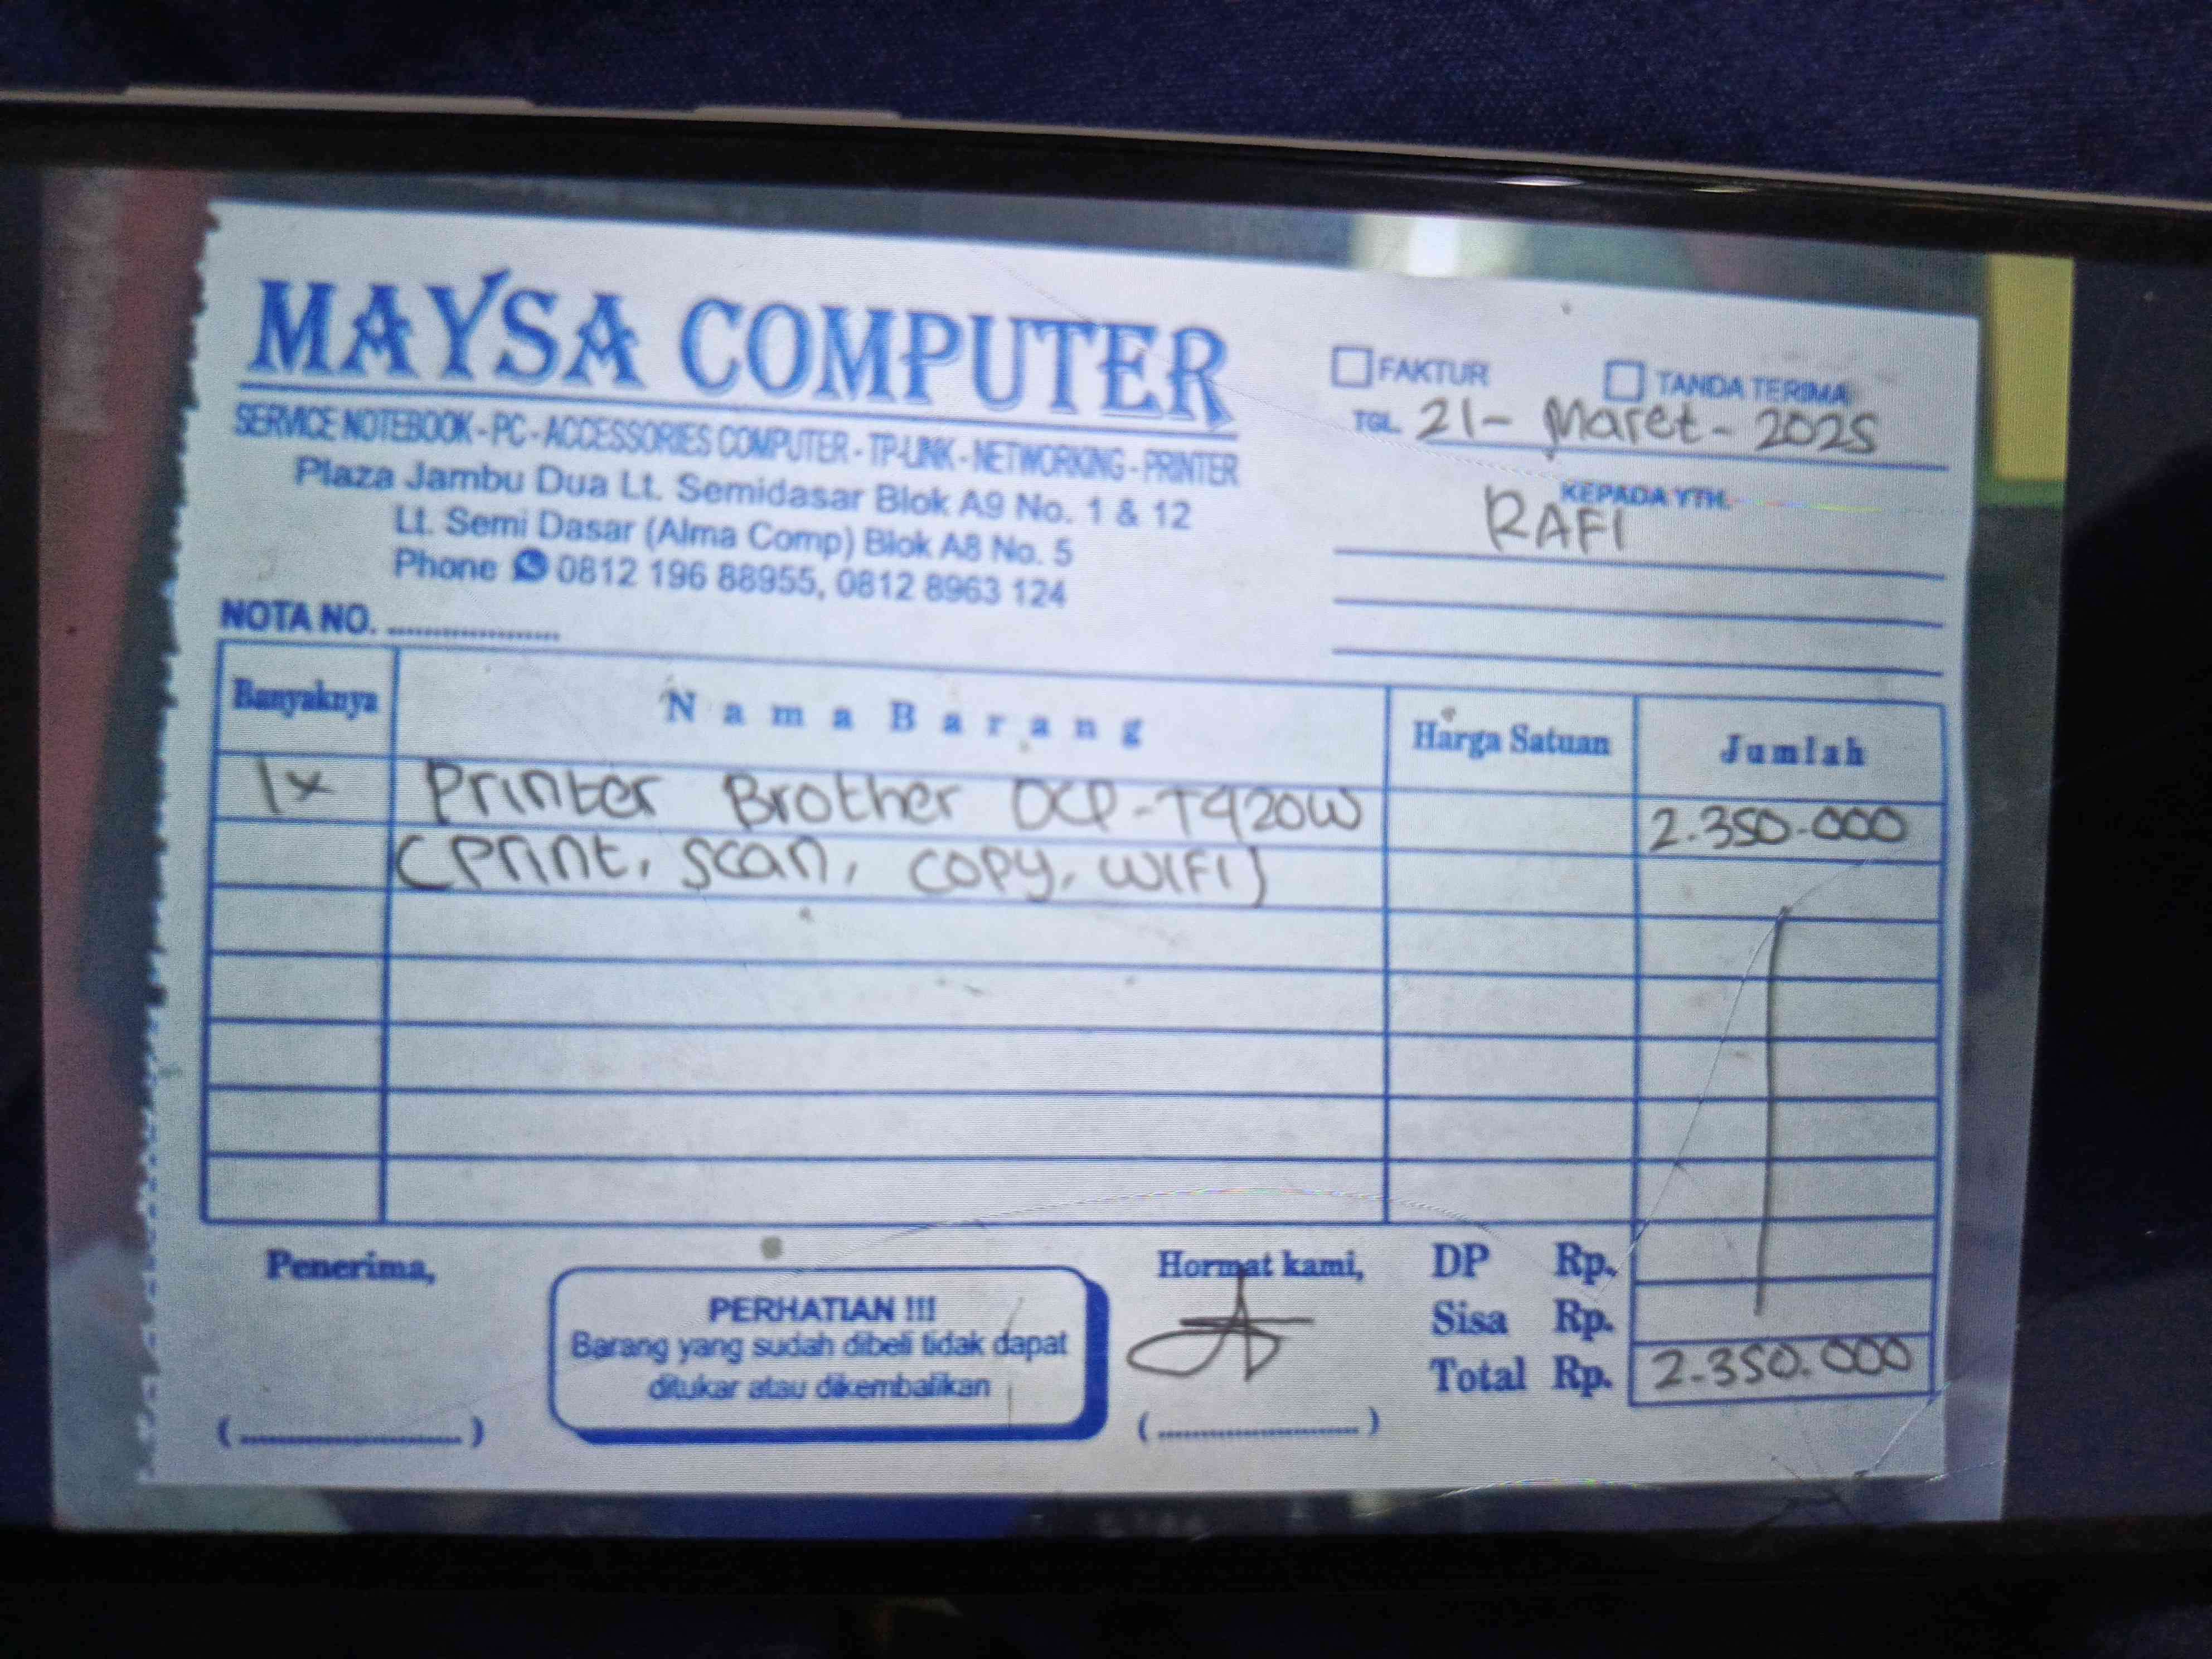 MAYSA COMPUTER
SERVICE NOTEBOOK - PC - ACCESSORIES COMPUTER - TP-LINK - NETWORKING - PRINTER
Plaza Jambu Dua Lt. Semidasar Blok A9 No. 1 & 12
Lt. Semi Dasar (Alma Comp) Blok A8 No. 5
Phone 0812 196 88955, 0812 8963 124
NOTA NO. ....................
FAKTUR TANDA TERIMA
TGL. 21- Maret- 2025
KEPADA YTH.
RAFI
Banyaknya Nama Barang Harga Satuan Jumlah
1x Printer Brother DCP-T420W 2.350.000
(Print, Scan, Copy, WIFI)
Penerima,
(........................)
PERHATIAN !!!
Barang yang sudah dibeli tidak dapat
ditukar atau dikembalikan
Hormat kami,
(........................)
DP Rp.
Sisa Rp.
Total Rp. 2.350.000